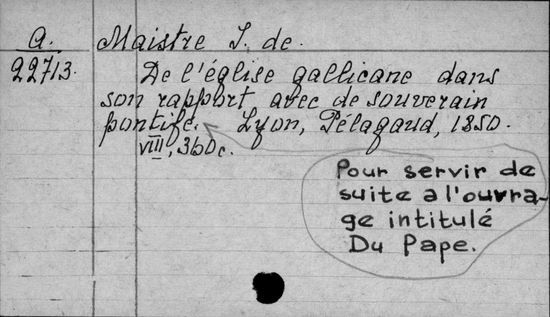 A. Maistre J. de.
22713. De l'église gallicane dans
son rapport avec de souverain
pontife. Lyon, Pélagaud, 1850.
VIII, 360 c.
Pour servir de
suite a l'ouvra-
ge intitulé
Du Pape.